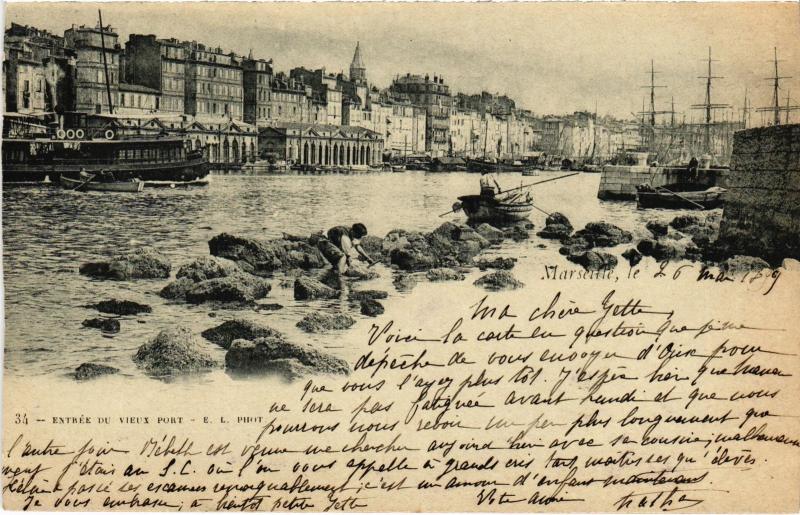 Marseille, le 26 mai 189
Ma chère Yette,
Voici la carte en question que je me
dépêche de vous envoyer d'ici pour
que vous l'ayez plus tôt. J'espère bien que
ne sera pas fatiguée avant lundi et que nous
34 - ENTRÉE DU VIEUX PORT - E. L. PHOT
pourrons nous revoir un peu plus longuement que
l'autre jour. est venue me chercher aujourd'hui avec sa cousine; malheureuse
ment j'étais au S.C. où l'on vous appelle à grands cris tant maîtresses qu'élèves.
a passé ses examens remarquablement; c'est un amour d'enfant maintenant.
Je vous embrasse; à bientôt petite Yette
Votre amie